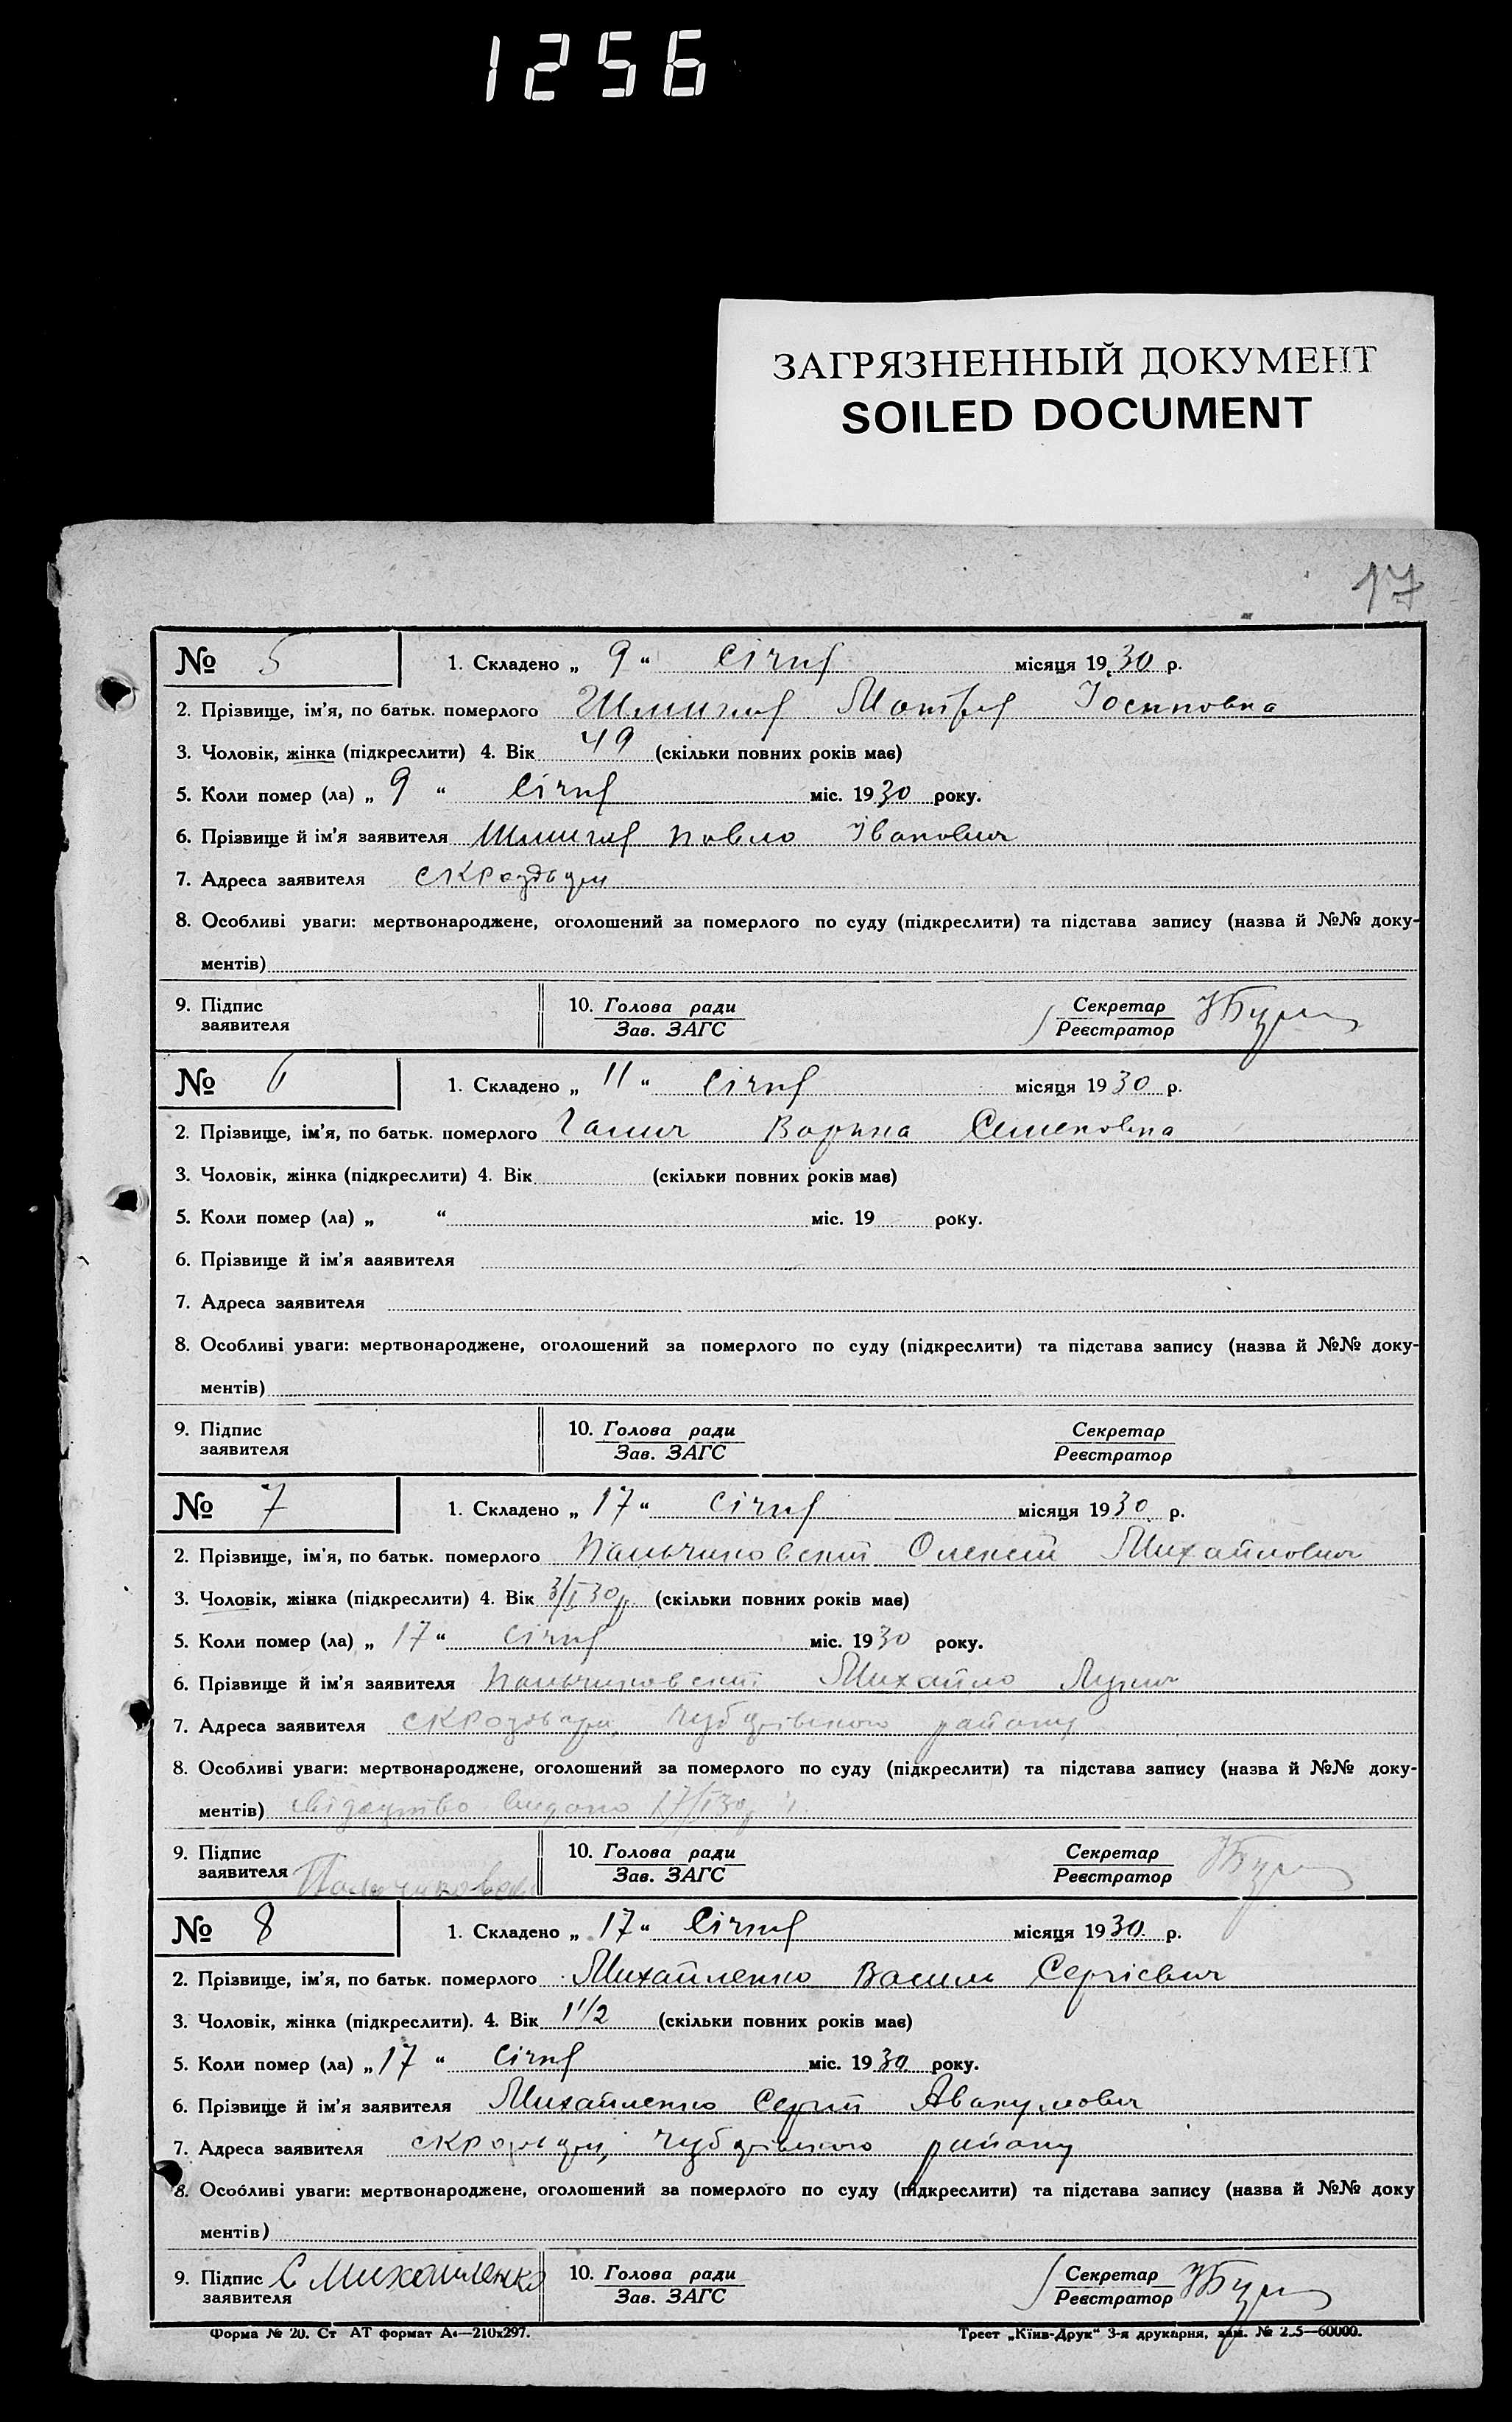 1256
ЗАГРЯЗНЕННЫЙ ДОКУМЕНТ
SOILED DOCUMENT
17
№ 5 1. Складено „ 9 “ Січня місяця 1930 р.
2. Прізвище, ім'я, по батьк. померлого Шмигля Мотря Іосиповна
3. Чоловік, жінка (підкреслити) 4. Вік 49 (скільки повних років має)
5. Коли помер (ла) „ 9 “ Січня міс. 1930 року.
6. Прізвище й ім'я заявителя Шмигля Павло Іванович
7. Адреса заявителя
8. Особливі уваги: мертвонароджене, оголошений за померлого по суду (підкреслити) та підстава запису (назва й №№ доку-
ментів)
9. Підпис заявителя 10. Голова ради Зав. ЗАГС Секретар Реєстратор
№ 6 1. Складено „ 11 “ Січня місяця 1930 р.
2. Прізвище, ім'я, по батьк. померлого Галич Варка Семеновна
3. Чоловік, жінка (підкреслити) 4. Вік (скільки повних років має)
5. Коли помер (ла) „ “ міс. 19 року.
6. Прізвище й ім'я заявителя
7. Адреса заявителя
8. Особливі уваги: мертвонароджене, оголошений за померлого по суду (підкреслити) та підстава запису (назва й №№ доку-
ментів)
9. Підпис заявителя 10. Голова ради Зав. ЗАГС Секретар Реєстратор
№ 7 1. Складено „ 17 “ Січня місяця 1930 р.
2. Прізвище, ім'я, по батьк. померлого Пальчиковський Олексій Михайлович
3. Чоловік, жінка (підкреслити) 4. Вік 3/І 30р. (скільки повних років має)
5. Коли помер (ла) „ 17 “ Січня міс. 1930 року.
6. Прізвище й ім'я заявителя Пальчиковський Михайло Лукич
7. Адреса заявителя району
8. Особливі уваги: мертвонароджене, оголошений за померлого по суду (підкреслити) та підстава запису (назва й №№ доку-
ментів) свідоцтво видано 17/І 30р
9. Підпис заявителя 10. Голова ради Зав. ЗАГС Секретар Реєстратор
№ 8 1. Складено „ 17 “ Січня місяця 1930 р.
2. Прізвище, ім'я, по батьк. померлого Михайленко Василь Сергієвич
3. Чоловік, жінка (підкреслити). 4. Вік 1 1/2 (скільки повних років має)
5. Коли помер (ла) „ 17 “ Січня міс. 1930 року.
6. Прізвище й ім'я заявителя Михайленко Сергій Авакумович
7. Адреса заявителя району
8. Особливі уваги: мертвонароджене, оголошений за померлого по суду (підкреслити) та підстава запису (назва й №№ доку
ментів)
9. Підпис заявителя С Михайленко 10. Голова ради Зав. ЗАГС Секретар Реєстратор
Форма № 20. Ст АТ формат А4—210х297. Трест „Київ-Друк“ 3-я друкарня, зам. № 2.5—60000.